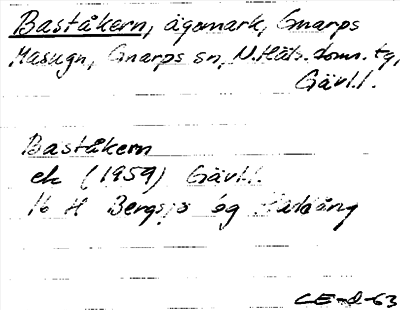 Baståkern, ägomark, Gnarps
Masugn, Gnarps sn, N.Häls. doms. tg,
Gävl.l.
Baståkern
ek (1959) Gävl.l.
16 H Bergsjö ög
CE-d-63